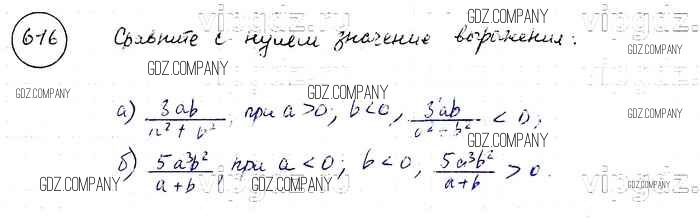 616 Сравните с нулем значение выражения:
GDZ.COMPANY
vipgdz.ru
GDZ.COMPANY
GDZ.COMPANY
GDZ.COMPANY
GDZ.COMPANY
а) 3ab / a² + b², при a > 0; b < 0, 3ab / a² + b² < 0;
GDZ.COMPANY
б) 5a³b² / a + b, при a < 0; b < 0, 5a³b² / a + b > 0.
GDZ.COMPANY
GDZ.COMPANY
GDZ.COMPANY
vipgdz.ru